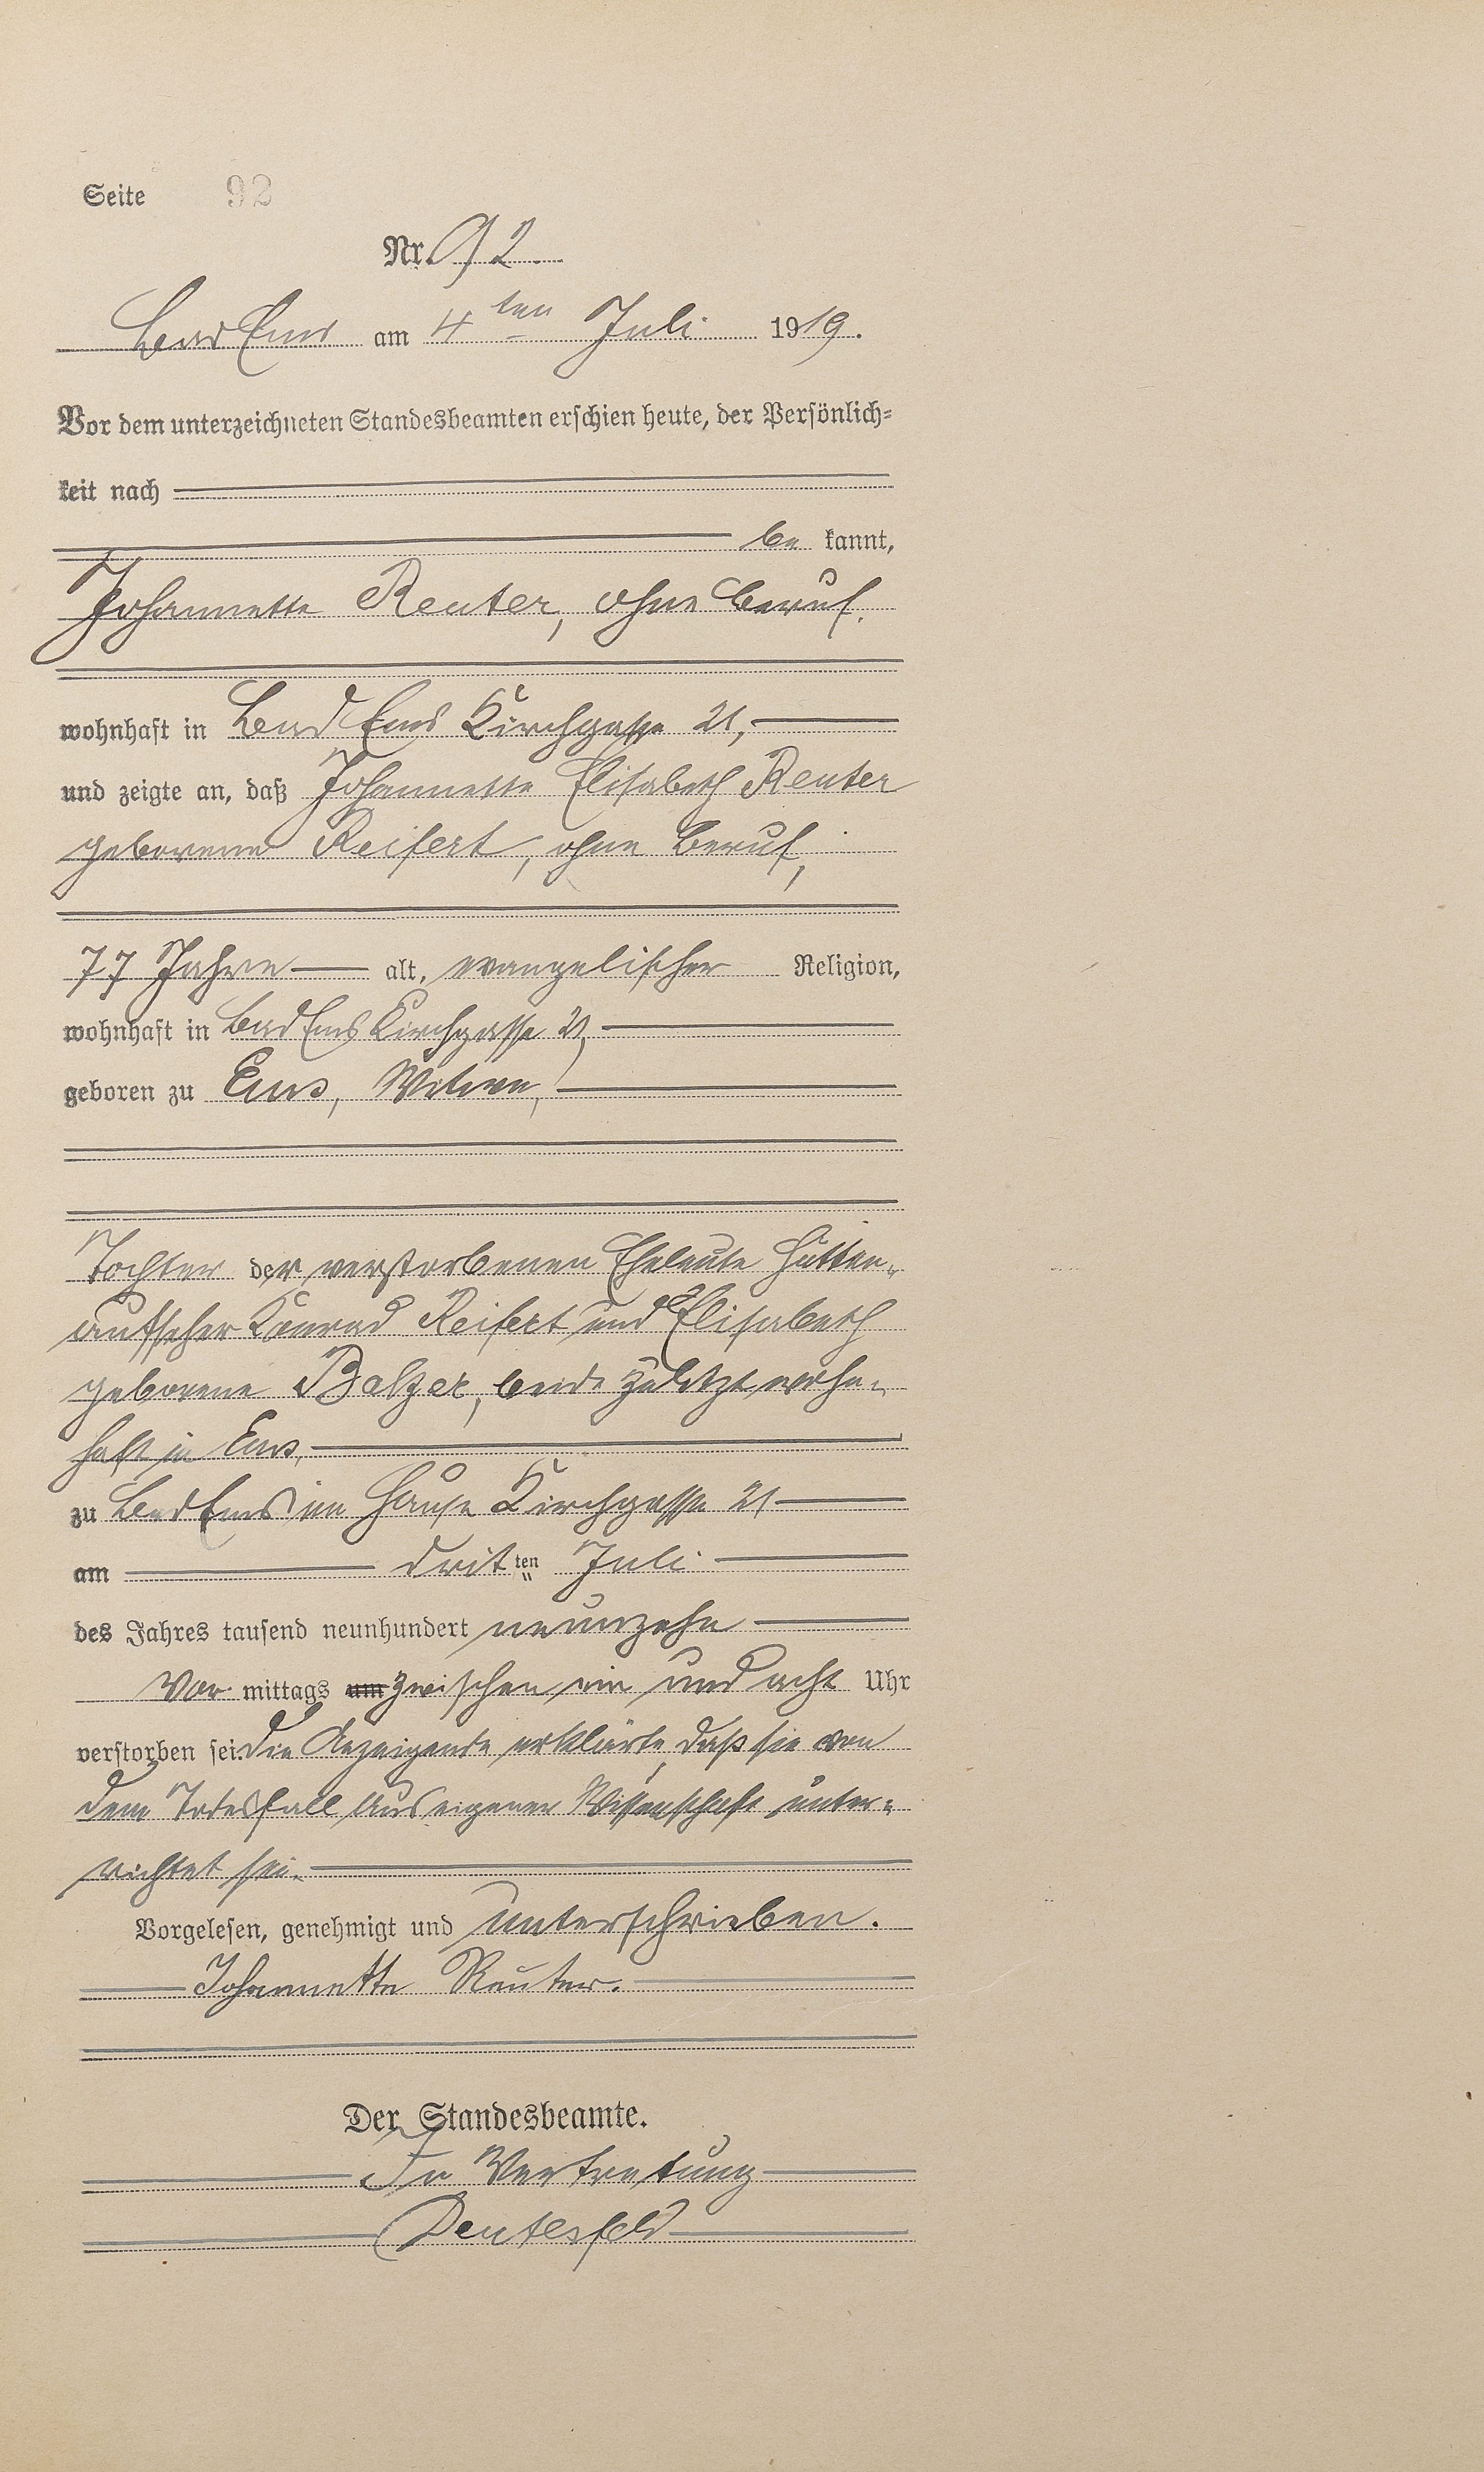 Seite 92
Nr. 92
Bad Ems am 4ten Juli 1919.
Vor dem unterzeichneten Standesbeamten erschien heute, der Persönlich=
keit nach
be kannt,
Johannette Reuter, ohne Beruf.
wohnhaft in Bad Ems Kirchgasse 21,
und zeigte an, daß Johannette Elisabeth Reuter
geborene Reifert, ohne Beruf,
77 Jahre alt, evangelischer Religion,
wohnhaft in Bad Ems Kirchgasse 21,
geboren zu Ems, Witwe,
Tochter der verstorbenen Eheleute Hütten-
aufseher Konrad Reifert und Elisabeth
geborene Balzer, beide zuletzt wohn-
haft in Ems,
zu Bad Ems im Hause Kirchgasse 21
am dritten Juli
des Jahres tausend neunhundert neunzehn
Vor mittags um zwischen ein und acht Uhr
verstorben sei. Die Anzeigende erklärte, daß sie von
dem Todesfall aus eigener Wissenschaft unter-
richtet sei.
Vorgelesen, genehmigt und unterschrieben.
Johannette Reuter.
Der Standesbeamte.
In Vertretung
Deutesfeld